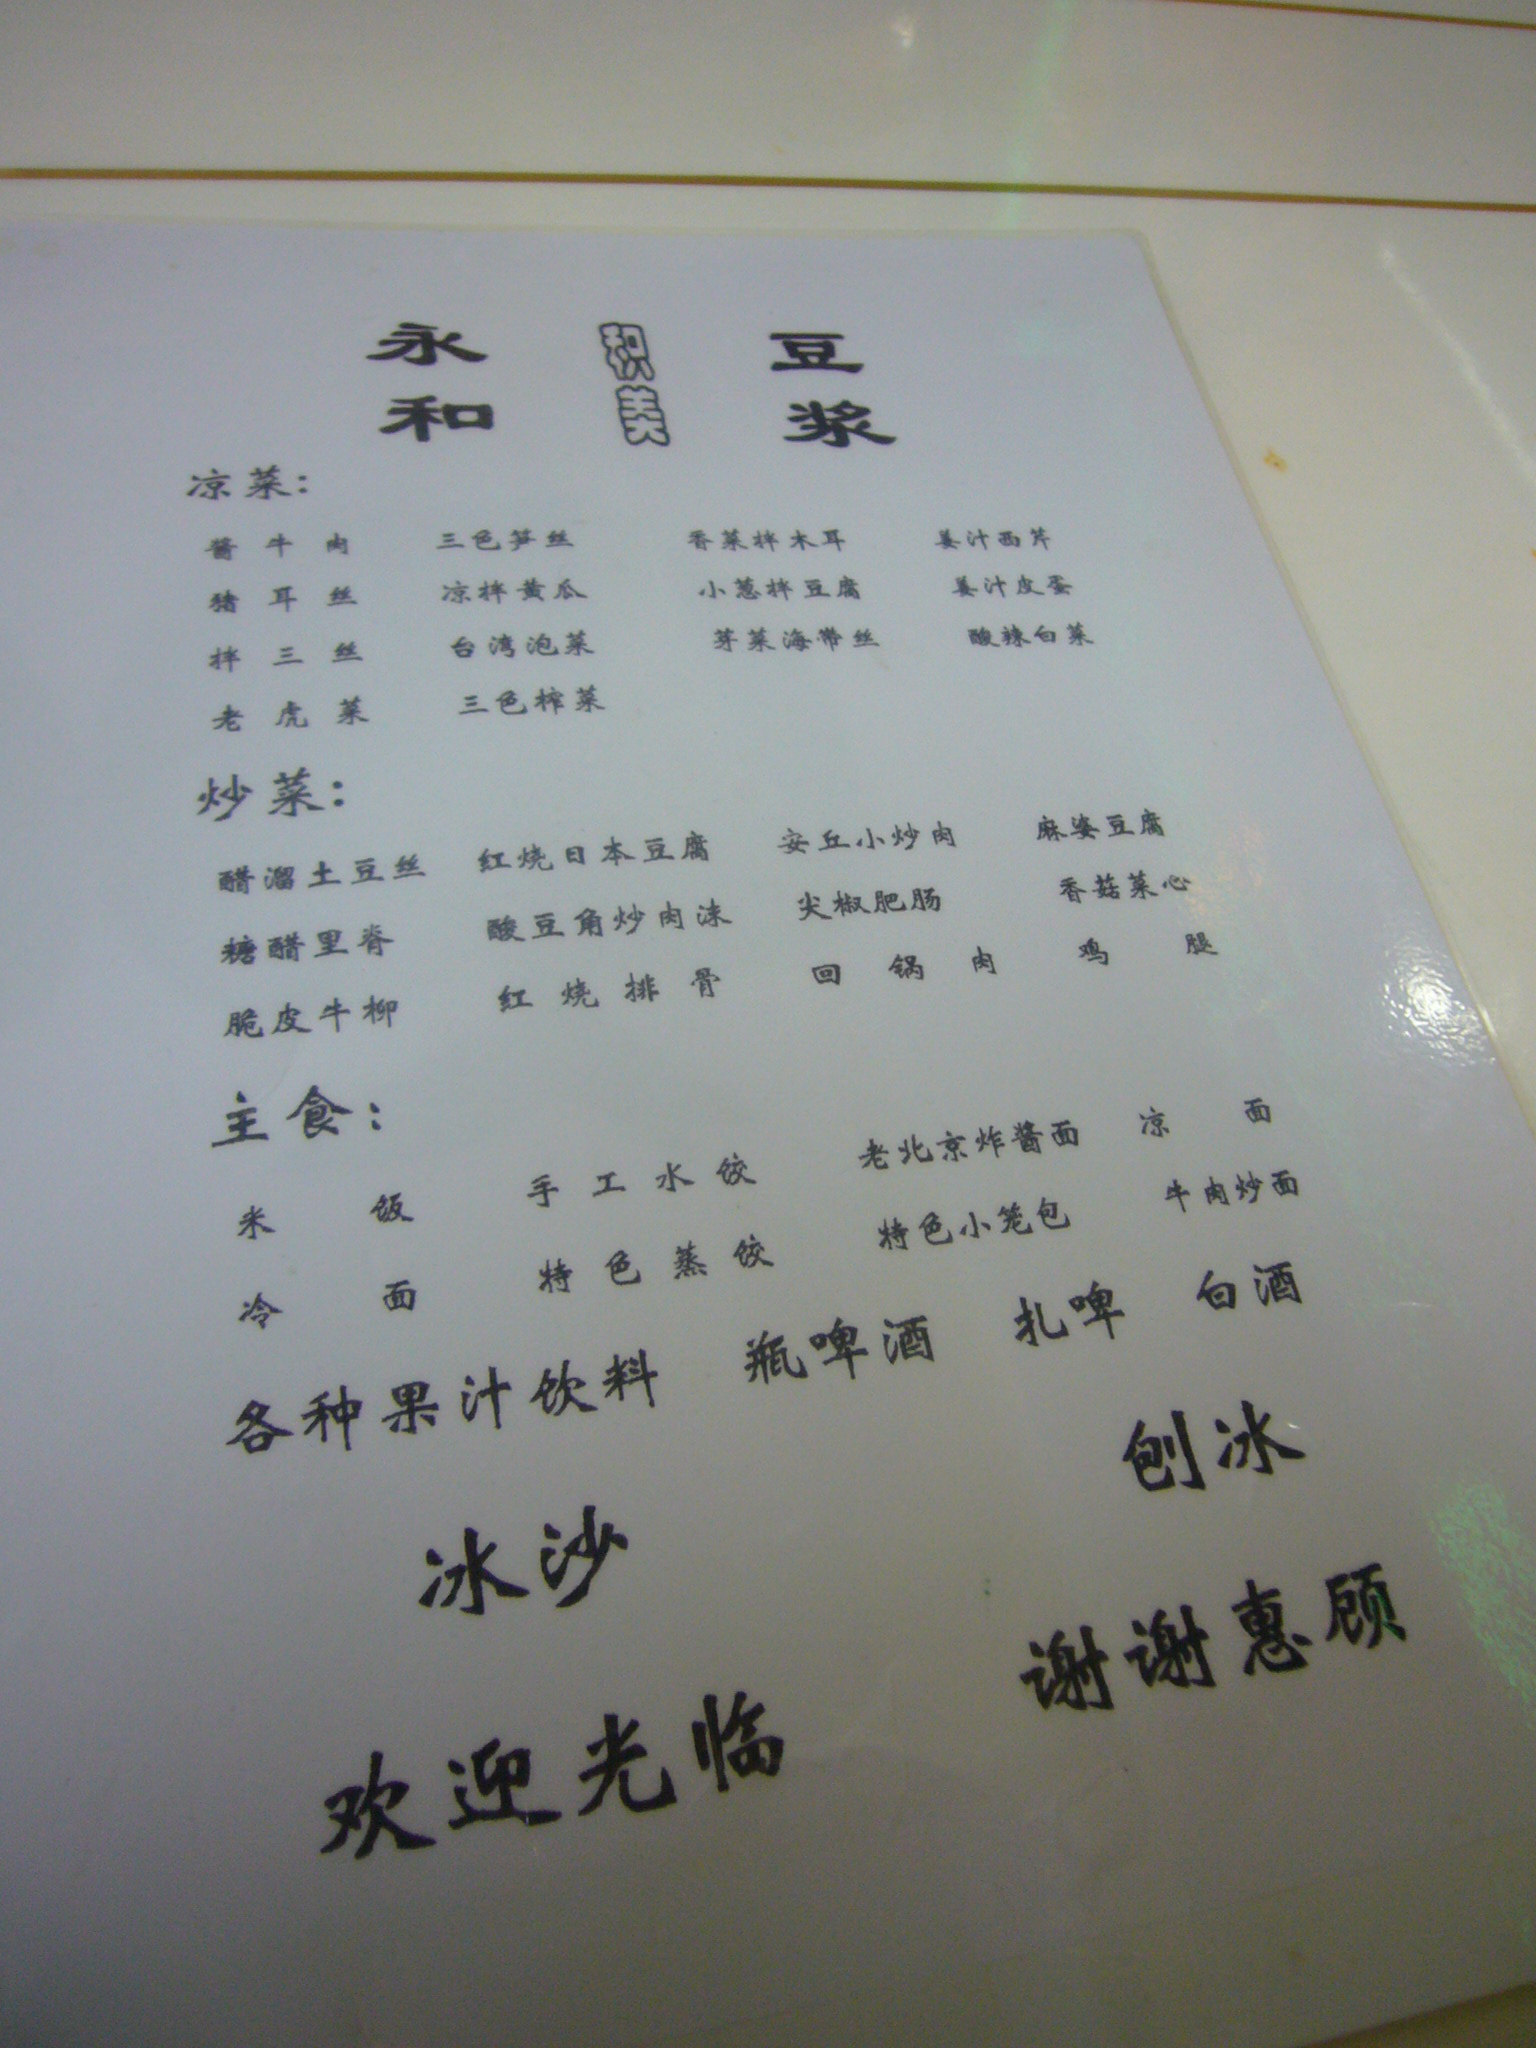 永 积 豆
和 美 浆
凉菜：
酱牛肉 三色笋丝 香菜拌木耳 姜汁西芹
猪耳丝 凉拌黄瓜 小葱拌豆腐 姜汁皮蛋
拌三丝 台湾泡菜 芽菜海带丝 酸辣白菜
老虎菜 三色榨菜
炒菜：
醋溜土豆丝 红烧日本豆腐 安丘小炒肉 麻婆豆腐
糖醋里脊 酸豆角炒肉沫 尖椒肥肠 香菇菜心
脆皮牛柳 红烧排骨 回锅肉 鸡腿
主食：
米饭 手工水饺 老北京炸酱面 凉面
冷面 特色蒸饺 特色小笼包 牛肉炒面
各种果汁饮料 瓶啤酒 扎啤 白酒
冰沙 刨冰
欢迎光临 谢谢惠顾